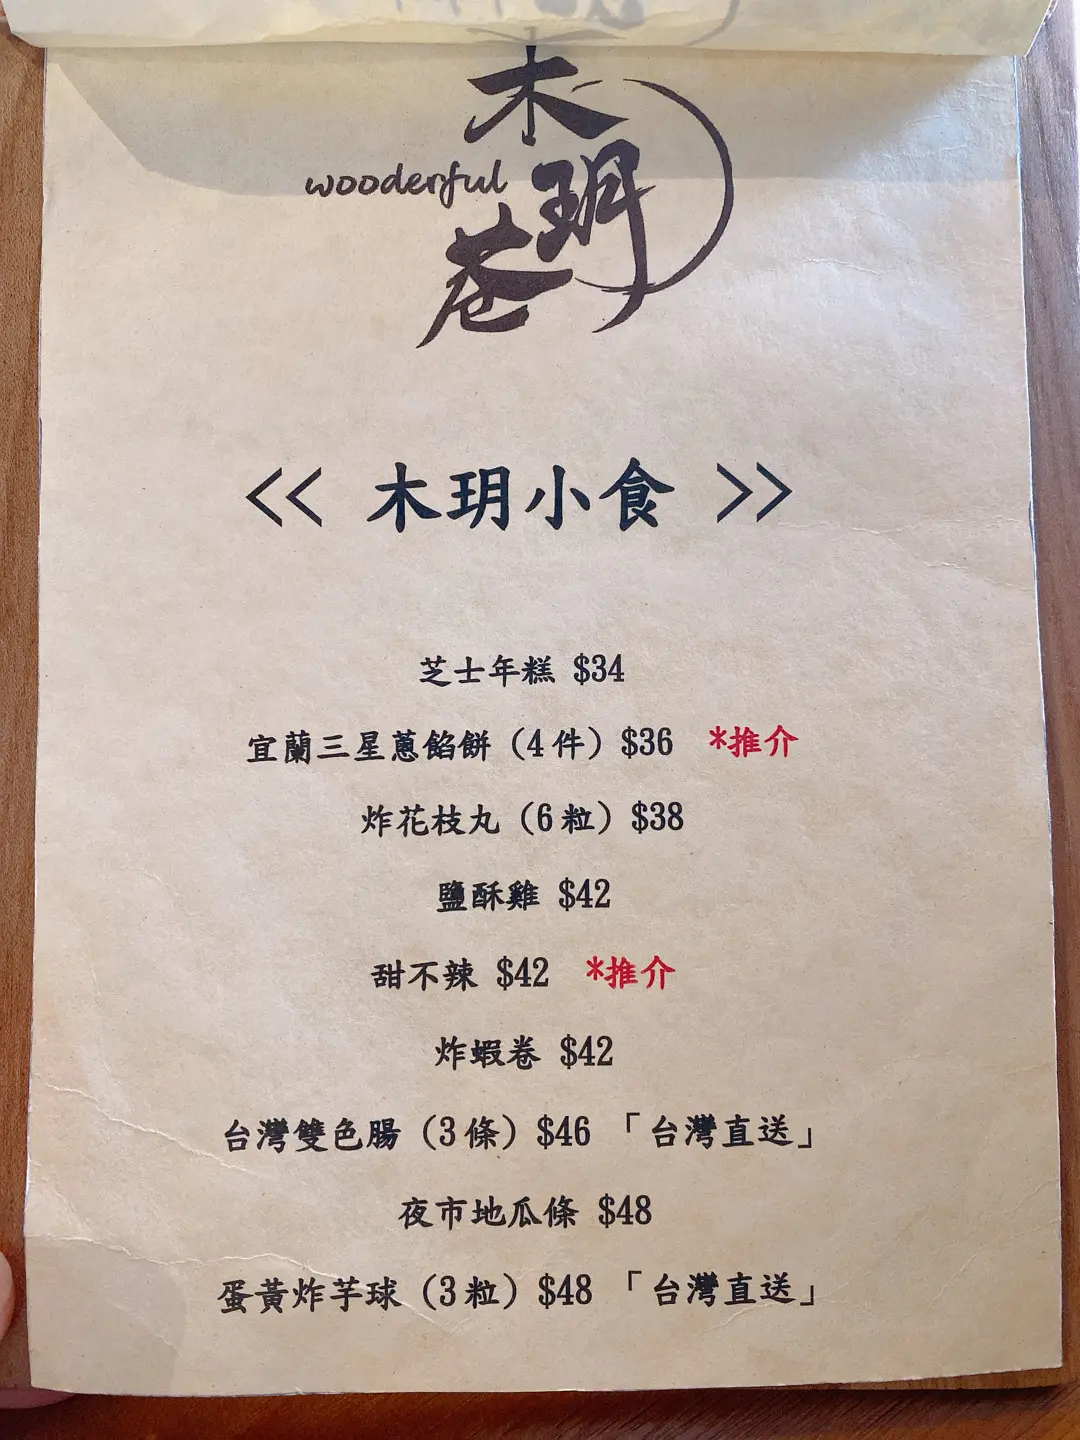 木
wooderful
玥
巷
<< 木玥小食 >>
芝士年糕 $34
宜蘭三星蔥餡餅（4件）$36 *推介
炸花枝丸（6粒）$38
鹽酥雞 $42
甜不辣 $42 *推介
炸蝦卷 $42
台灣雙色腸（3條）$46 「台灣直送」
夜市地瓜條 $48
蛋黃炸芋球（3粒）$48 「台灣直送」